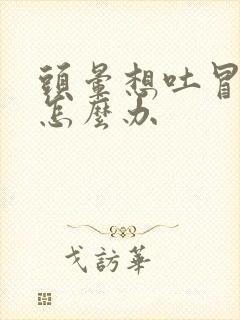 頭暈想吐冒
怎麼办
戈訪華